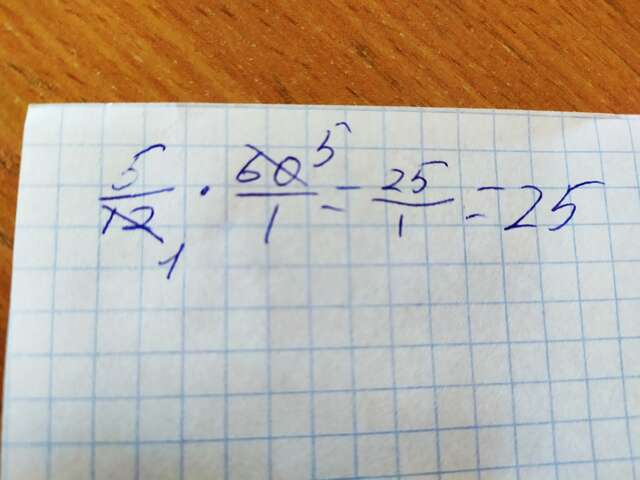 5/12 1 · 60 5/1 = 25/1 = 25